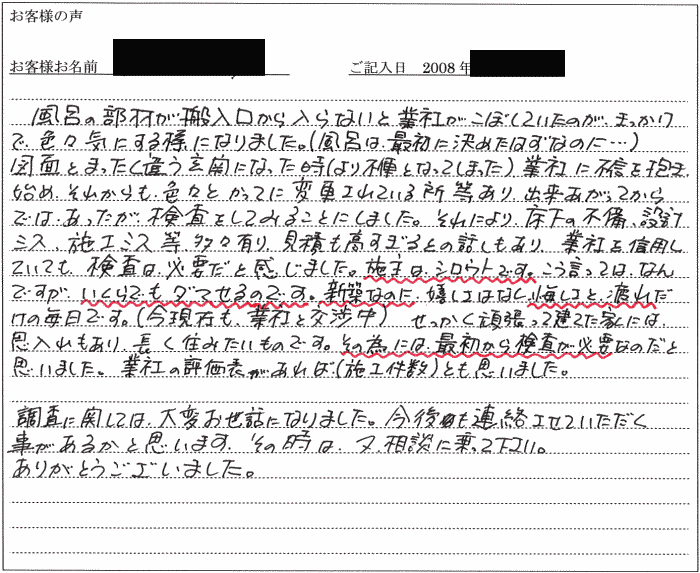 お客様の声
お客様お名前 ご記入日 2008年
風呂の部材が搬入口から入らないと業社がこぼしていたのが、きっかけ
で、色々気にする様になりました。(風呂は、最初に決めたはずなのに…)
図面とまったく違う玄関になった時(より不便となってしまった)業社に不信を抱き
始め、それからも、色々とかってに変更されている所等あり、出来あがってから
では、あったが、検査をしてみることにしました。それにより、床下の不備、設計
ミス、施工ミス等多々有り、見積も高すぎるとの話しもあり、業社を信用し
ていても、検査は、必要だと感じました。施主は、シロウトです。こう言っては、なん
ですが、いくらでもダマせるのです。新築なのに、嬉しさはなく、悔しさと、疲れだ
けの毎日です。(今現在も、業社と交渉中) せっかく頑張って建てた家には、
思入れもあり、長く住みたいものです。その為には、最初から検査が必要なのだと
思いました。業社の評価表があれば(施工件数)とも思いました。
調査に関しては、大変お世話になりました。今後も連絡させていただく
事があるかと思います。その時は、又、相談に乗って下さい。
ありがとうございました。